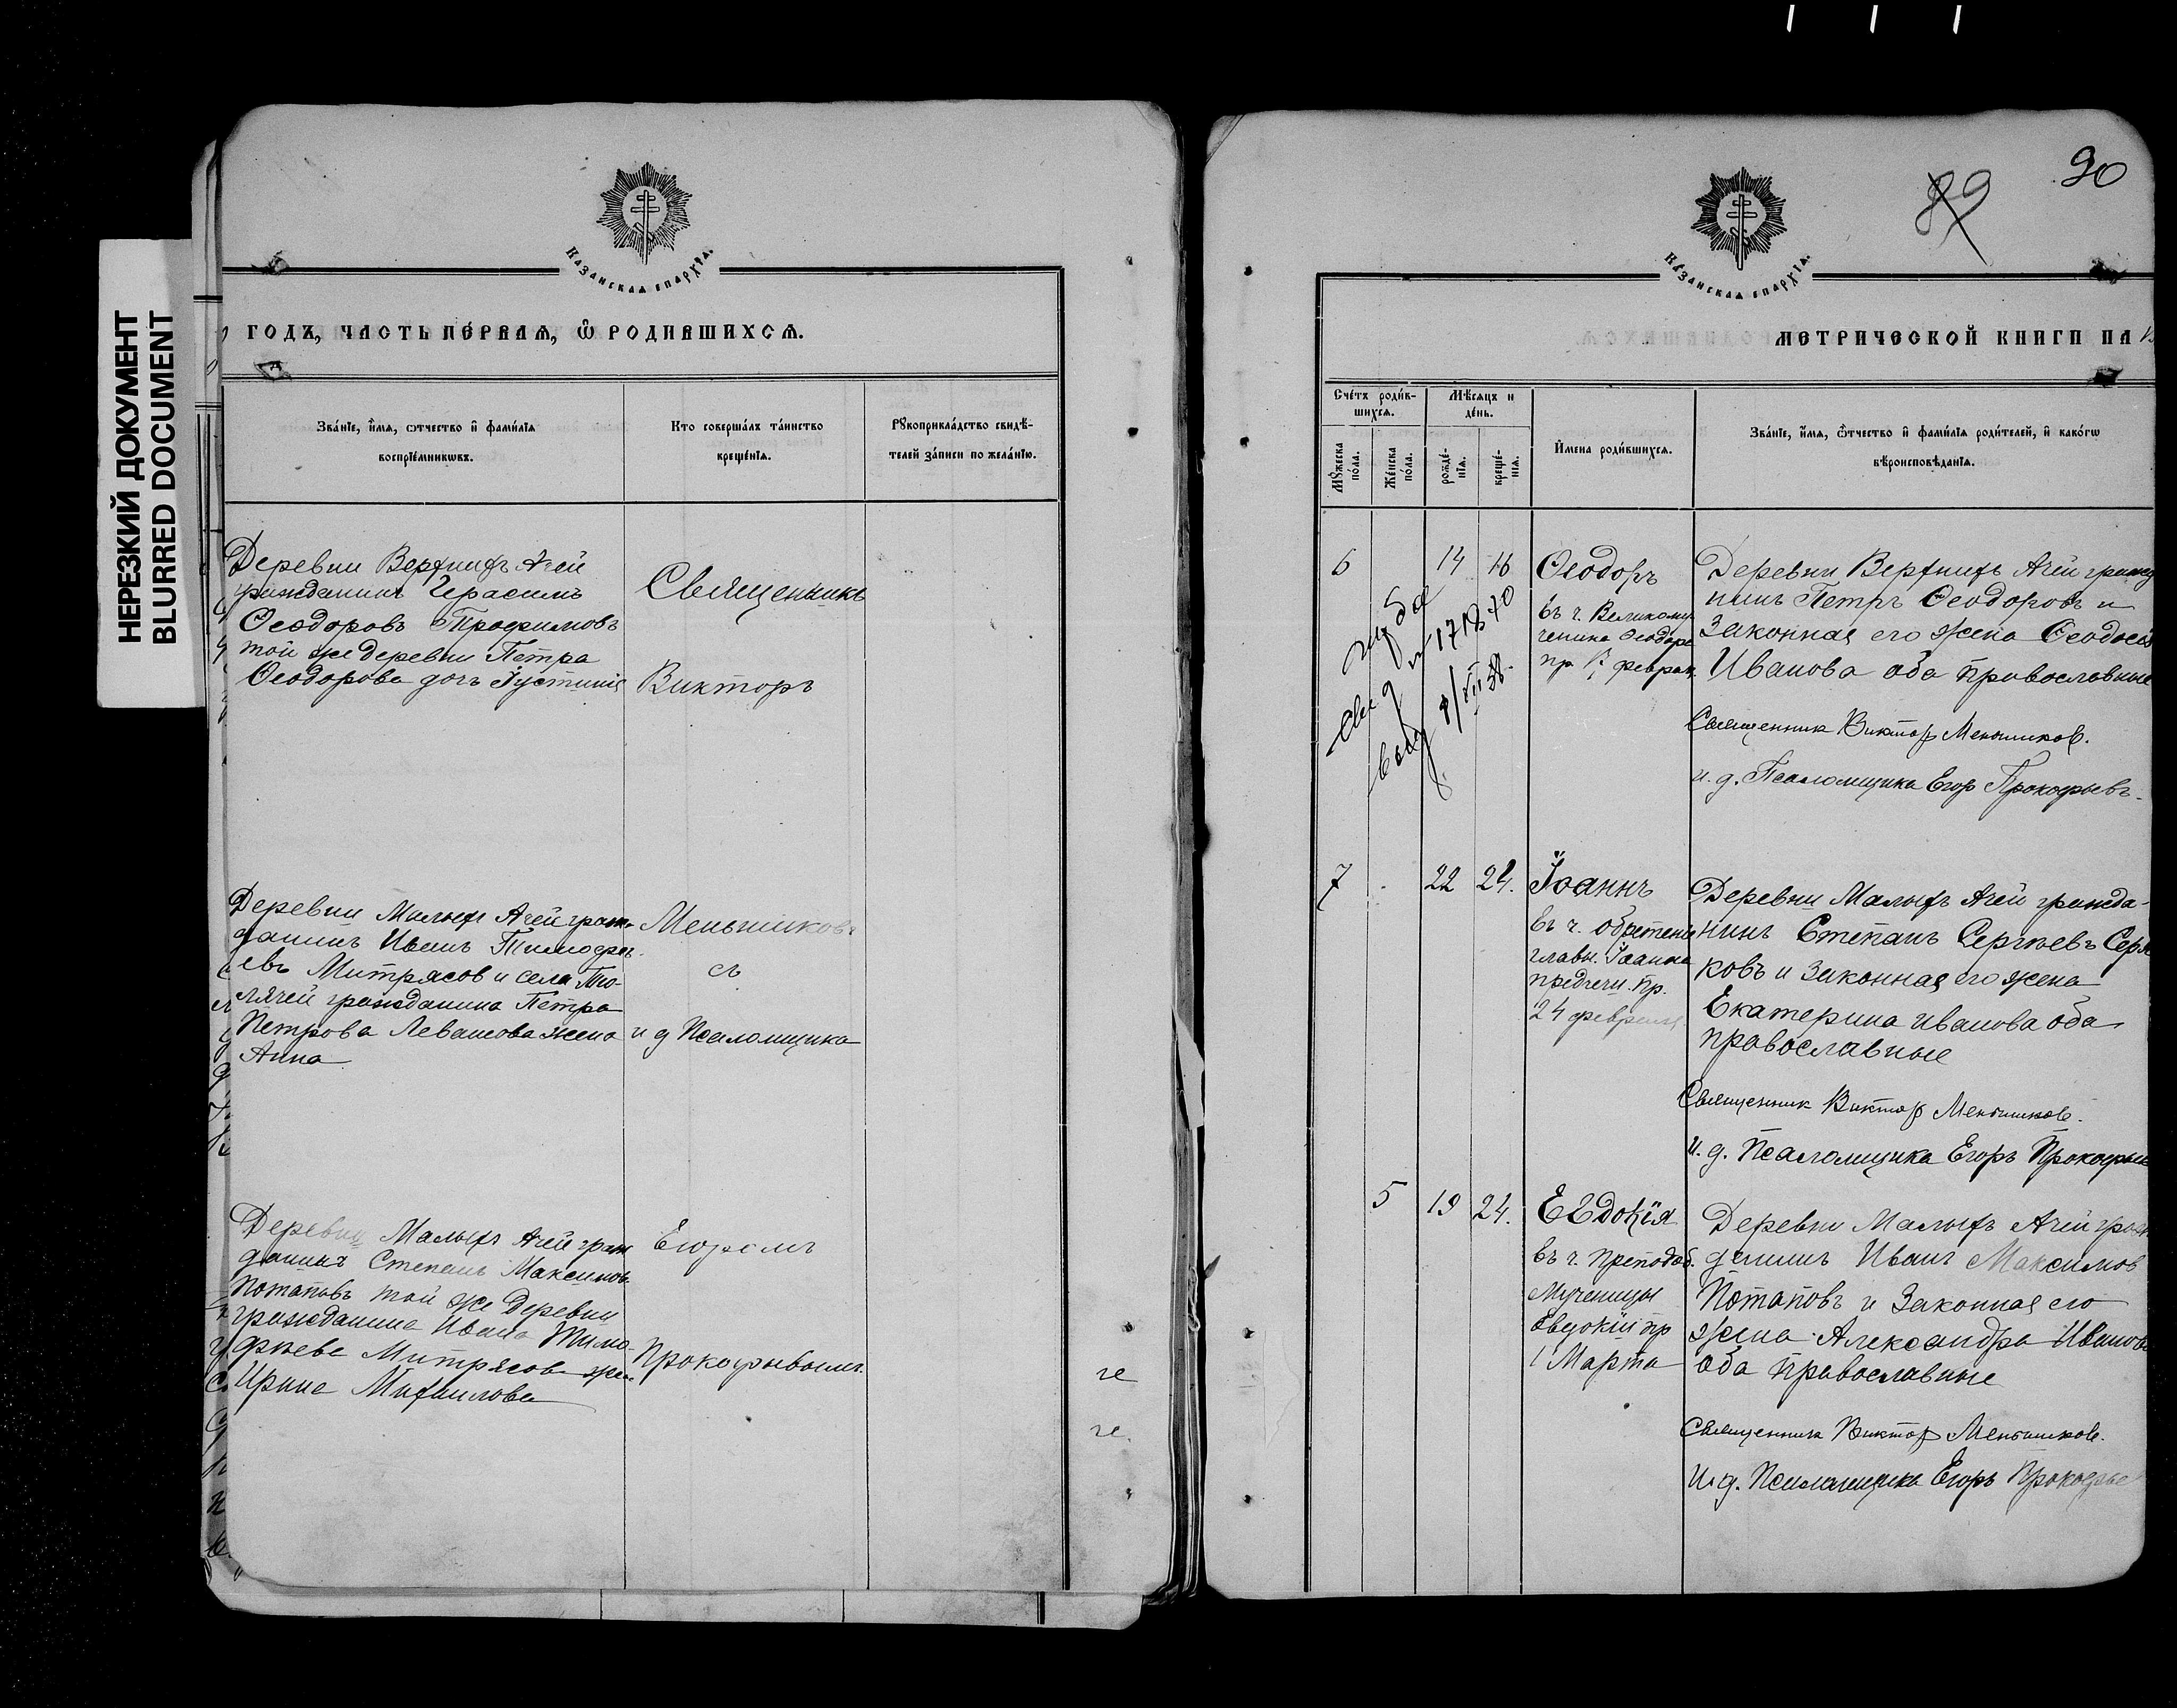 НЕРЕЗКИЙ ДОКУМЕНТ
BLURRED DOCUMENT
Казанская епархїѧ.
годъ, часть пе́рваѧ, ѿ родившихсѧ.
Зва́нїе, и҆́мѧ, ѻтчество и҆ фами́лїѧ
воспрїе́мникѡвъ.
Кто соверша́лъ та́инство
креще́нїѧ.
Рꙋкоприкла́дство свидѣ-
телей за́писи по жела́нїю.
Деревни Верхнихъ Ачей
гражданинъ Герасимъ
Ѳеодоровъ Трофимовъ
той же деревни Петра
Ѳеодорова дочь Іустинія
Священникъ
Викторъ
Деревни Малыхъ Ачей граж-
данинъ Иванъ Тимофе-
евъ Митрясов и села Тю-
лячей гражданина Петра
Петрова Левашова жена
Анна
Меньшиковъ
съ
и д Псаломщика
Деревни Малыхъ Ачей граж
данинъ Степанъ Максимов
Потаповъ той же деревни
гражданина Ивана Тимо-
фѣева Митрясова жена
Ирина Михаилова
Егоромъ
Прокофьевымъ.
че
че.
89
90
Казанская епархїѧ.
метрической книги на
Сче́тъ роди́в-
шихсѧ.
Мꙋжеска
по́ла.
Же́нска
по́ла.
Мѣ́сѧцъ и
де́нь.
рожде́-
нїѧ.
креще́-
нїѧ.
И҆мена роди́вшихсѧ.
Зва́нїе, и҆́мѧ, ѻ҆́тчество и҆ фами́лїѧ роди́телей, и҆ како́гѡ
вѣроисповѣ́данїѧ.
6 14 16 Ѳеодоръ
въ ч. Великому
ченика Ѳеодора
пр 17 феврал.
Деревни Верхнихъ Ачей гражд
нинъ Петръ Ѳеодоровъ и
законная его жена Ѳеодосія
Иванова оба православные
Священник Виктор Меньшиков.
и. д. Псаломщика Егор Прокофьевъ.
7 22 24. Іоаннъ
въ ч. обретенія
главы. Іоанна
предтечи. пр.
24 февраля.
Деревни Малыхъ Ачей гражда-
нинъ Степанъ Сергѣевъ Серя
ковъ и законная его жена
Екатерина иванова оба
православные
Священник Виктор Меньшиков.
и. д. Псаломщика Егоръ Прокофьев
5 19 24. Евдокія
въ ч. преподоб.
Мученицы
Евдокіи пр
1 Марта
Деревни Малыхъ Ачей граж
данинъ Иванъ Максимов
Потаповъ и законная его
жена Александра Иванова
оба православные
Священник Виктор Меньшиков.
И. д. Псаломщика Егоръ Прокофье